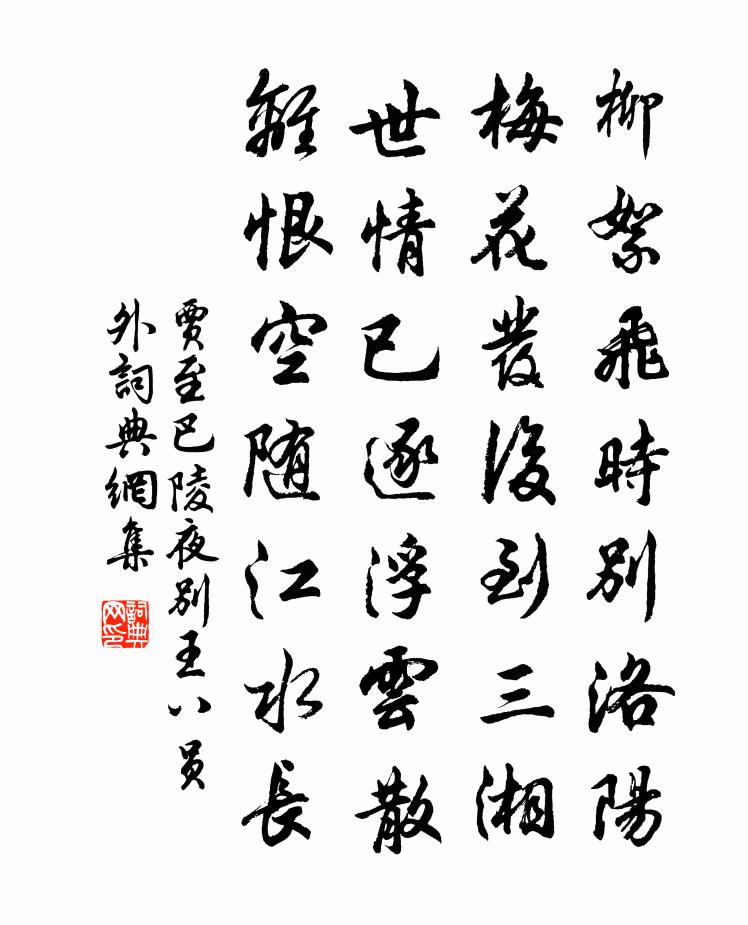 柳絮飛時別洛陽
梅花發後到三湘
世情已逐浮雲散
離恨空随江水長
賈至巴陵夜別王八員
外詞典網集
詞典网印